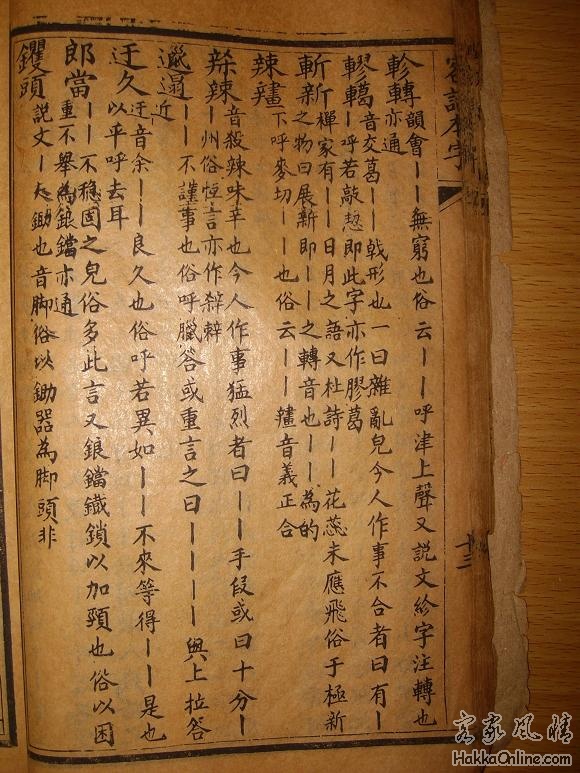 客話本字
軫轉韻會丨丨無窮也俗云丨丨呼津上聲又説文紾字注轉也
亦通
轇轕音交葛丨丨戟形也一曰雜亂皃今人作事不合者曰有丨
丨呼若敲即此字亦作膠葛
斬新禪家有丨丨日月之語又杜詩丨丨花蕊未應飛俗于極新
之物曰展新即丨丨之轉音也丨丨為的
辣下呼麥切丨丨也俗云丨丨音義正合
辣音殺辣味辛也今人作事猛烈者曰丨丨手段或曰十分丨
丨州俗恒言亦作
邋遢丨丨不謹事也俗呼臘答或重言之曰丨丨丨丨與上拉答
近
迂久迂音余丨丨良久也俗呼若異如丨丨不來等得丨丨是也
以平呼去耳
郎當丨丨不穩固之皃俗多此言又鋃鐺鐵鎖以加頸也俗以困
重不舉為鋃鐺亦通
钁頭説文丨大鋤也音脚俗以鋤器為脚頭非
十三
客家風情
HakkaOnline.com